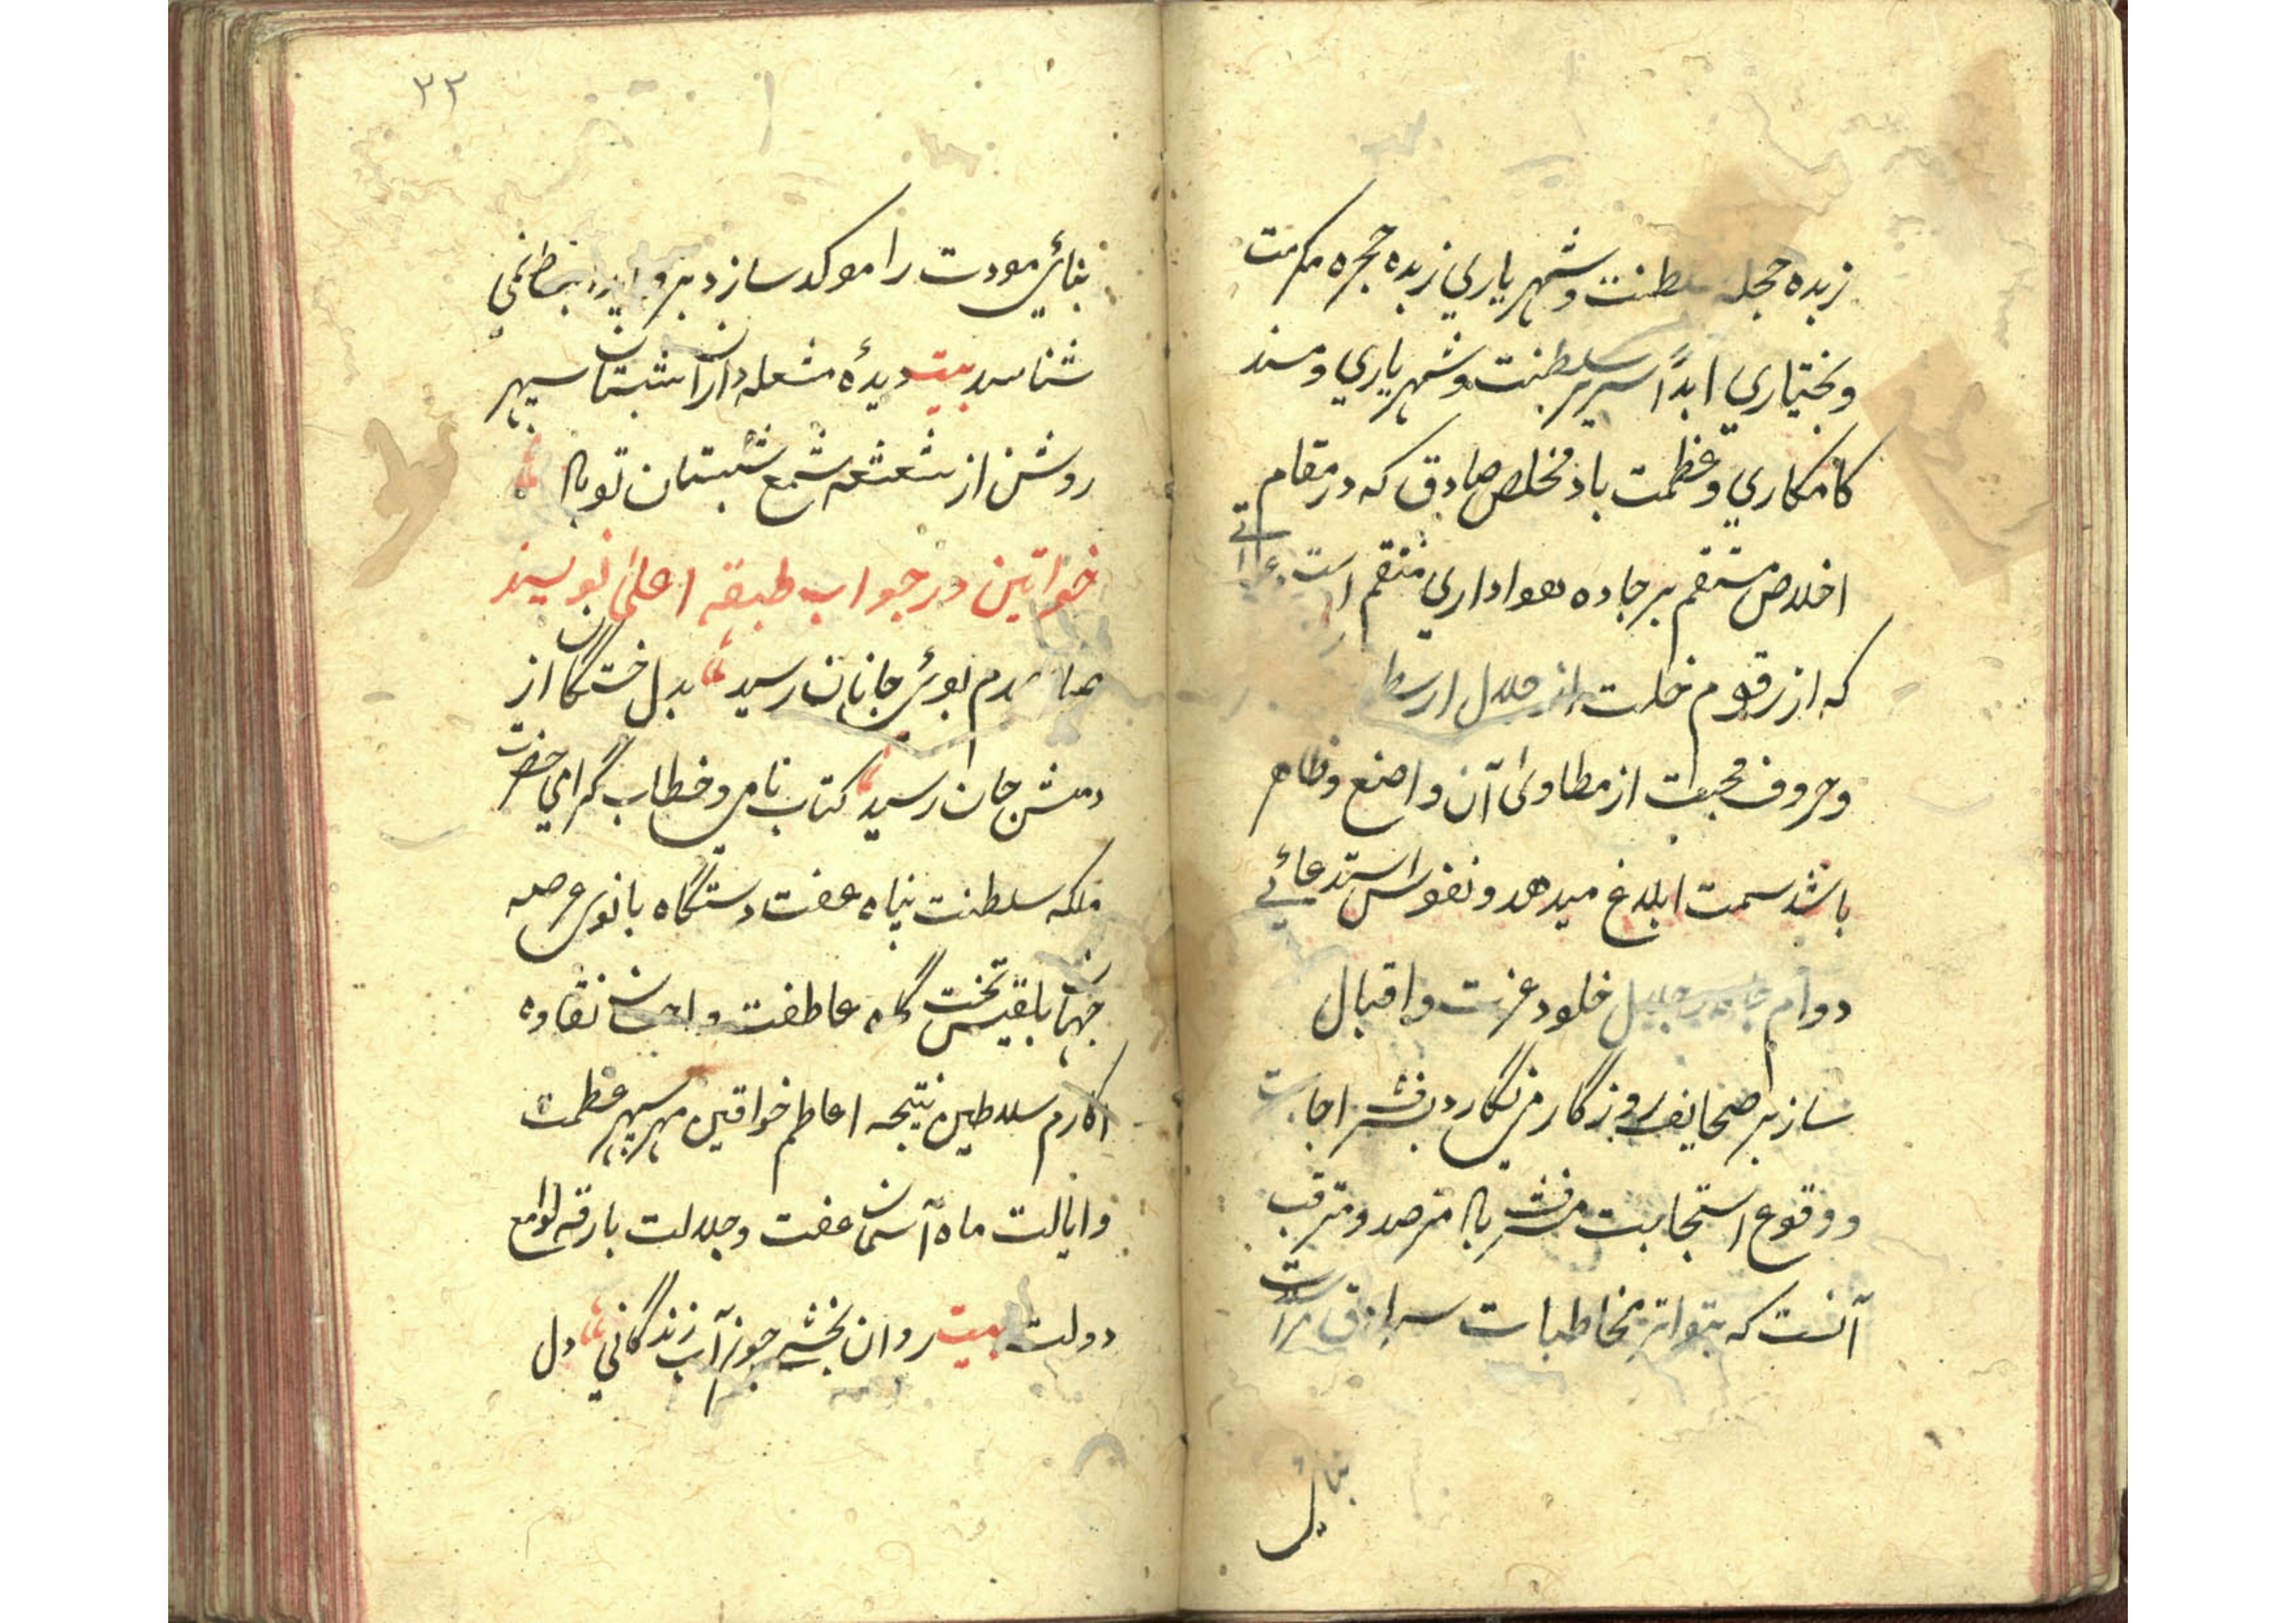 زبده حجله سلطنت و شهرياري زبده حجره مكرمت
و بختياري ابداً سرير سلطنت و شهرياري و مسند
كامكاري و عظمت باد مخلص صادق كه در مقام
اخلاص مستقم بر جاده هواداري منتقم است
كه از رقوم خلت از خلال ارسطا
و حروف محبت از مطاوئ آن واضع و ظاهر
باشد سمت ابلاغ ميدهد و نفوس استدعائے
دوام خلود عزت و اقبال
ساز بر صحايف روزگار مى نگارد بشرف اجابت
و وقوع استجابت مشرف باد مترصد و مترقب
آنست كه بتواتر مخاطبات
بنائ
٣٣
بنائ مودت را موكد سازد
شناسد بيت ديدهٔ مشعله داران شبستان سپهر
روشن از شعشعه شمع شبستان تو باد
خواتين در جواب طبقه اعلىٰ نويسند
صبا بوئ جانان رسيد بدل خستگان از
دمش جان رسيد كتاب نامى و خطاب گرامي حضرت
ملكه سلطنت پناه عفت دستگاه بانوى عرصه
جهان بلقيس تخت گاه عاطفت و احسان نقاوه
اكارم سلاطين نتيجه اعاظم خواقين مهر سپهر عظمت
و ايالت ماه آسمان عفت و جلالت بارقه لوامع
دولت بيت روان بخش چون آب زندگاني دل